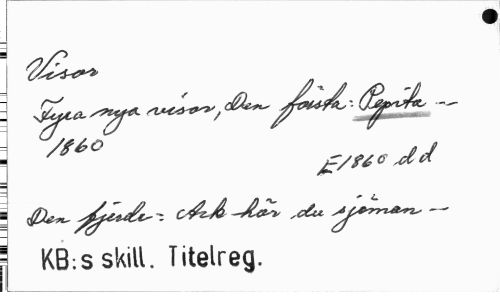 Visor
Fyra nya visor, Den första: Pepita --
1860
E1860 dd
Den fjerde: Ack hör du sjöman --
KB:s skill. Titelreg.